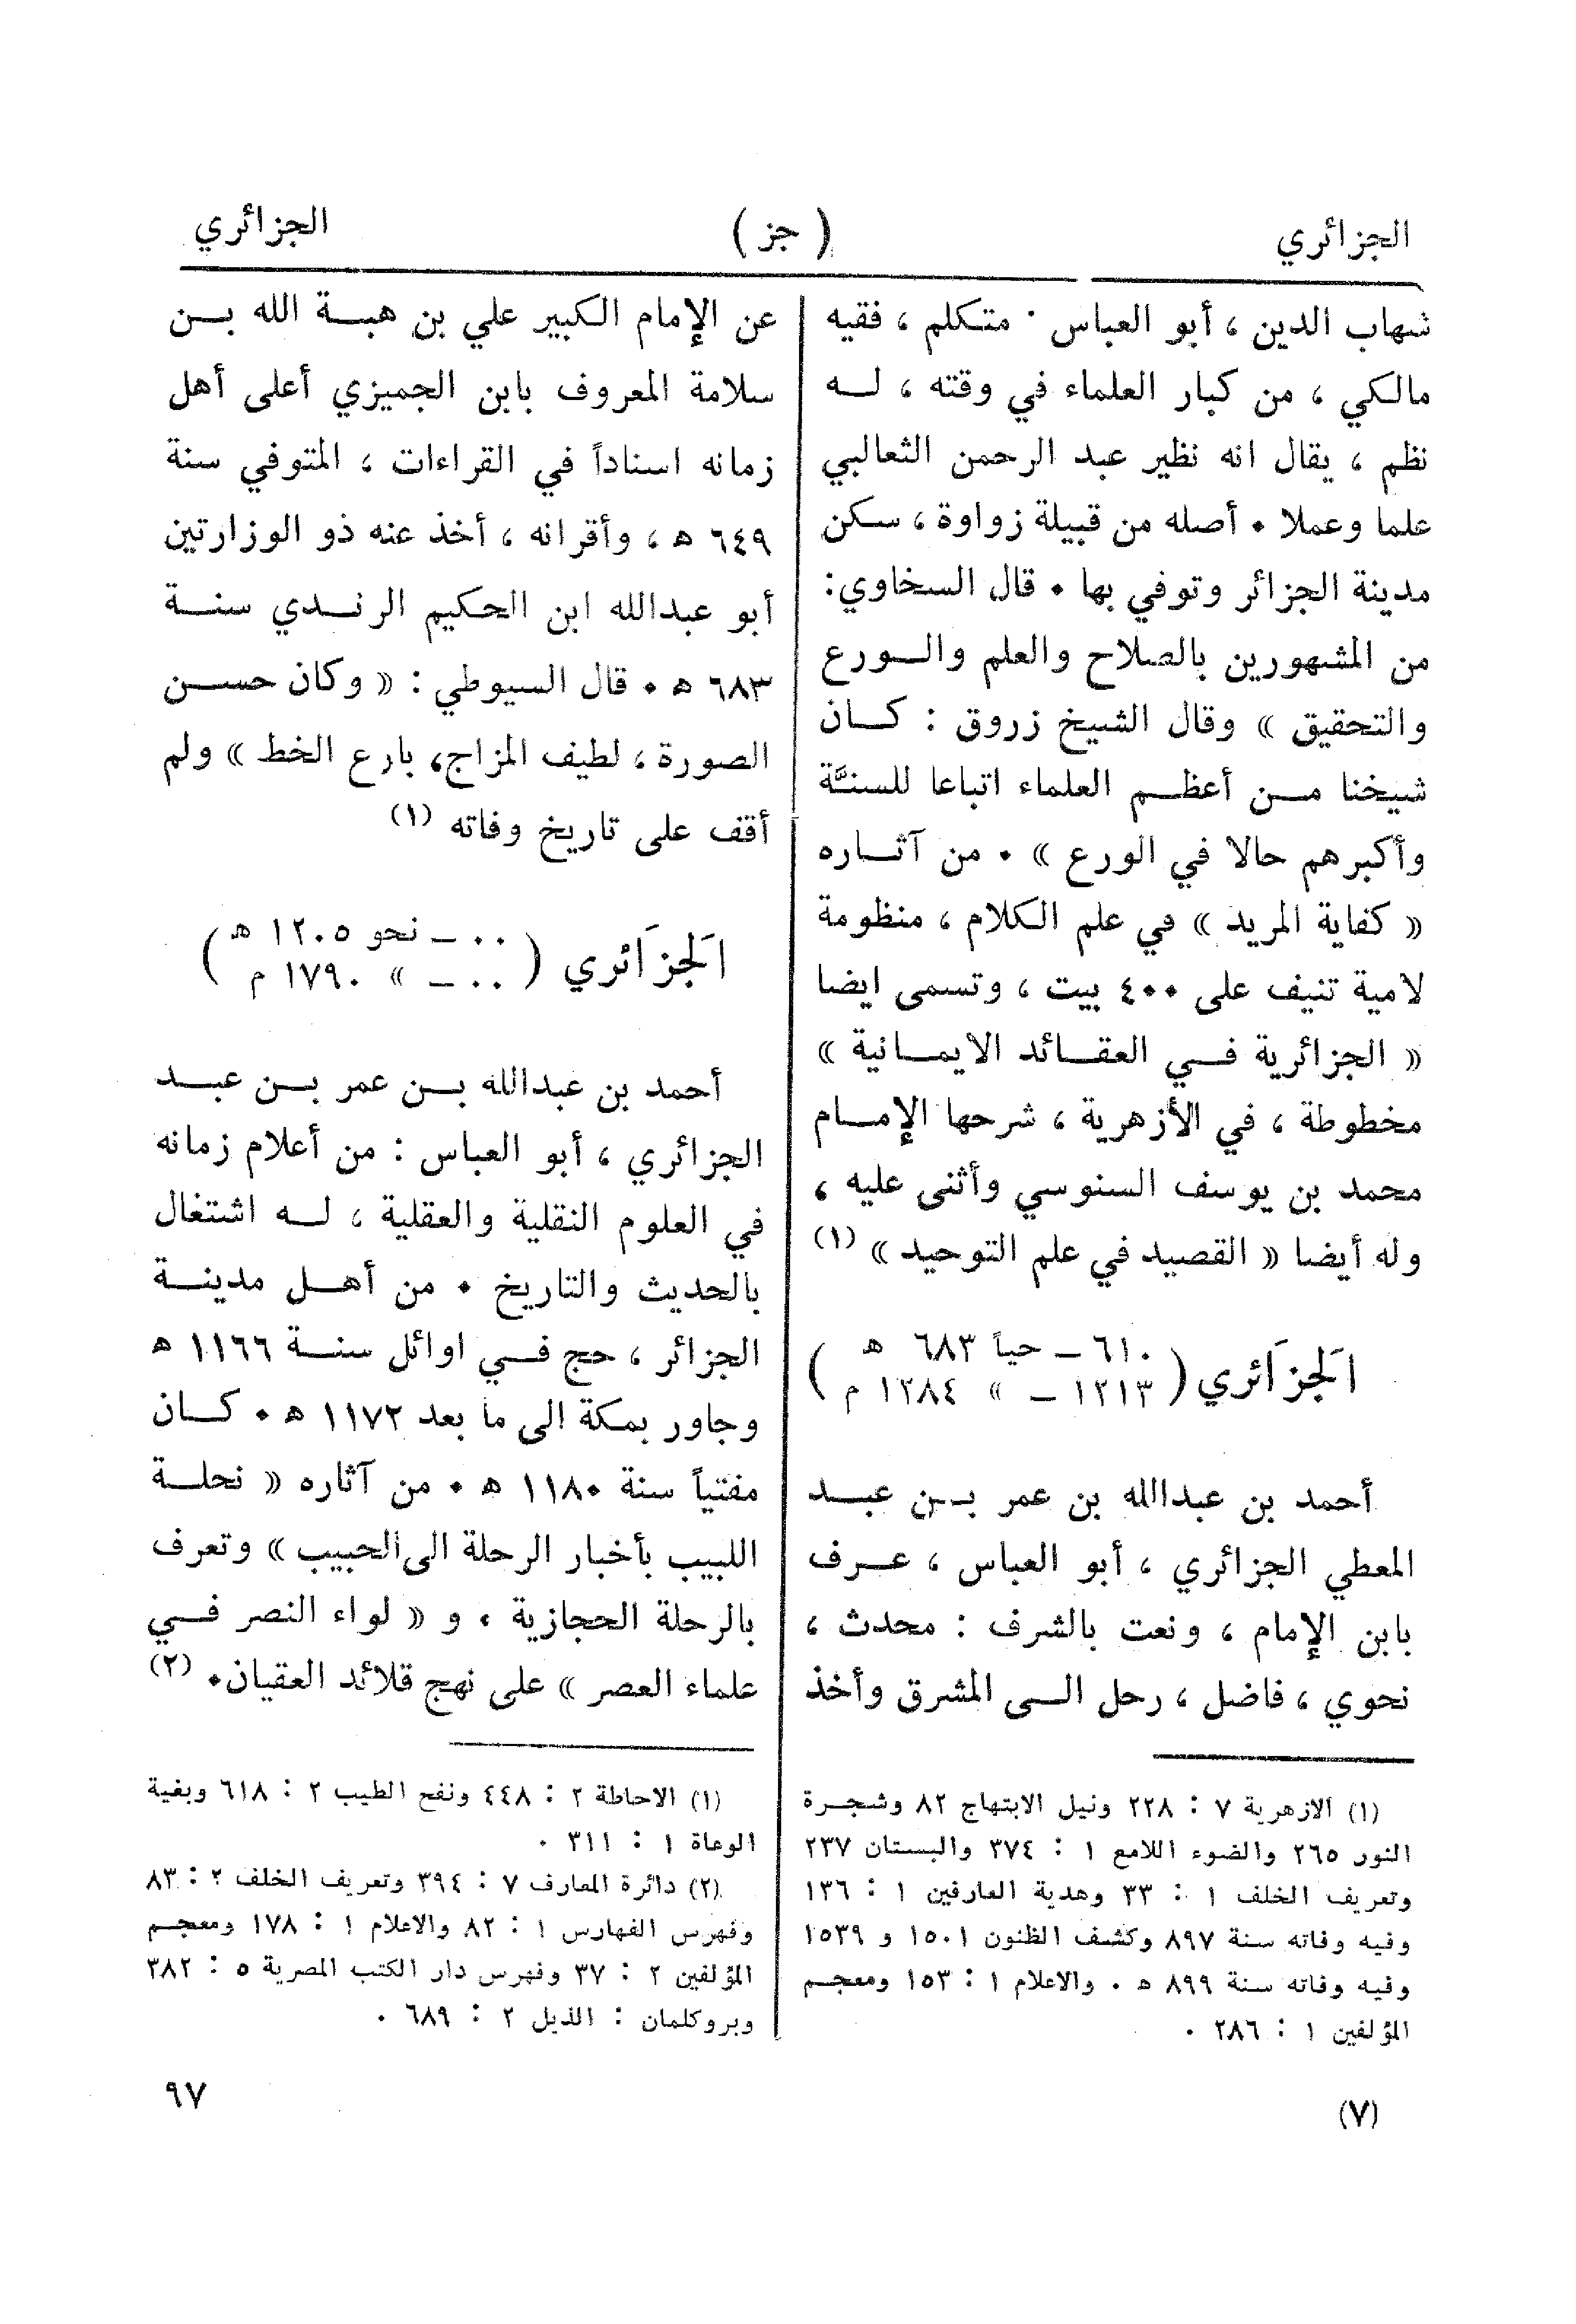 الجزائري
( جز )
الجزائري
شهاب الدين ، أبو العباس ٠ متكلم ، فقيه
مالكي ، من كبار العلماء في وقته ، لـه
نظم ، يقال انه نظير عبد الرحمن الثعالبي
علما وعملا ٠ أصله من قبيلة زواوة ، سكن
مدينة الجزائر وتوفي بها ٠ قال السخاوي:
من المشهورين بالصلاح والعلم والـورع
والتحقيق » وقال الشيخ زروق : كـان
شيخنا مـن أعظـم العلماء اتباعا للسنَّة
وأكبرهم حالا في الورع » ٠ من آثـاره
« كفاية المريد » في علم الكلام ، منظومة
لامية تنيف على ٤٠٠ بيت ، وتسمى ايضا
« الجزائرية فـي العقـائد الايمـانية »
مخطوطة ، في الأزهرية ، شرحها الإمـام
محمد بن يوسف السنوسي وأثنى عليه ،
وله أيضا « القصيد في علم التوحيد » (١)
الجَزَائري ( ٦١٠ – حياً ٦٨٣ ه
١٢١٣ – » ١٢٨٤ م )
أحمد بن عبدالله بن عمر بـن عبـد
المعطي الجزائري ، أبو العباس ، عـرف
بابن الإمام ، ونعت بالشرف : محدث ،
نحوي ، فاضل ، رحل الـى المشرق وأخذ
(١) الازهرية ٧ : ٢٢٨ ونيل الابتهاج ٨٢ وشجـرة
النور ٢٦٥ والضوء اللامع ١ : ٣٧٤ والبستان ٢٣٧
وتعريف الخلف ١ : ٣٣ وهدية العارفين ١ : ١٣٦
وفيه وفاته سنة ٨٩٧ وكشف الظنون ١٥٠١ و ١٥٣٩
وفيه وفاته سنة ٨٩٩ ه ٠ والاعلام ١ : ١٥٣ ومعجـم
المؤلفين ١ : ٢٨٦ ٠
(٧)
عن الإمام الكبير علي بن هبـة الله بـن
سلامة المعروف بابن الجميزي أعلى أهل
زمانه اسناداً في القراءات ، المتوفي سنة
٦٤٩ ه ، وأقرانه ، أخذ عنه ذو الوزارتين
أبو عبدالله ابن الحكيم الرنـدي سنـة
٦٨٣ ه ٠ قال السيوطي : « وكان حسـن
الصورة ، لطيف المزاج، بارع الخط » ولم
أقف على تاريخ وفاته (١)
الجَزَائري ( ٠٠ – نحو ١٢٠٥ ه
٠٠ – » ١٧٩٠ م )
أحمد بن عبدالله بـن عمر بـن عبـد
الجزائري ، أبو العباس : من أعلام زمانه
في العلوم النقلية والعقلية ، لـه اشتغال
بالحديث والتاريخ ٠ من أهـل مدينـة
الجزائر ، حج فـي اوائل سنـة ١١٦٦ ه
وجاور بمكة الى ما بعد ١١٧٢ ه ٠ كـان
مفتياً سنة ١١٨٠ ه ٠ من آثاره « نحلـة
اللبيب بأخبار الرحلة الى الحبيب » وتعرف
بالرحلة الحجازية ، و « لواء النصر فـي
علماء العصر » على نهج قلائد العقيان٠ (٢)
(١) الاحاطة ٢ : ٤٤٨ ونفح الطيب ٢ : ٦١٨ وبغية
الوعاة ١ : ٣١١ ٠
(٢) دائرة المعارف ٧ : ٣٩٤ وتعريف الخلف ٢ : ٨٣
وفهرس الفهارس ١ : ٨٢ والاعلام ١ : ١٧٨ ومعجـم
المؤلفين ٢ : ٣٧ وفهرس دار الكتب المصرية ٥ : ٣٨٢
وبروكلمان : الذيل ٢ : ٦٨٩ ٠
٩٧